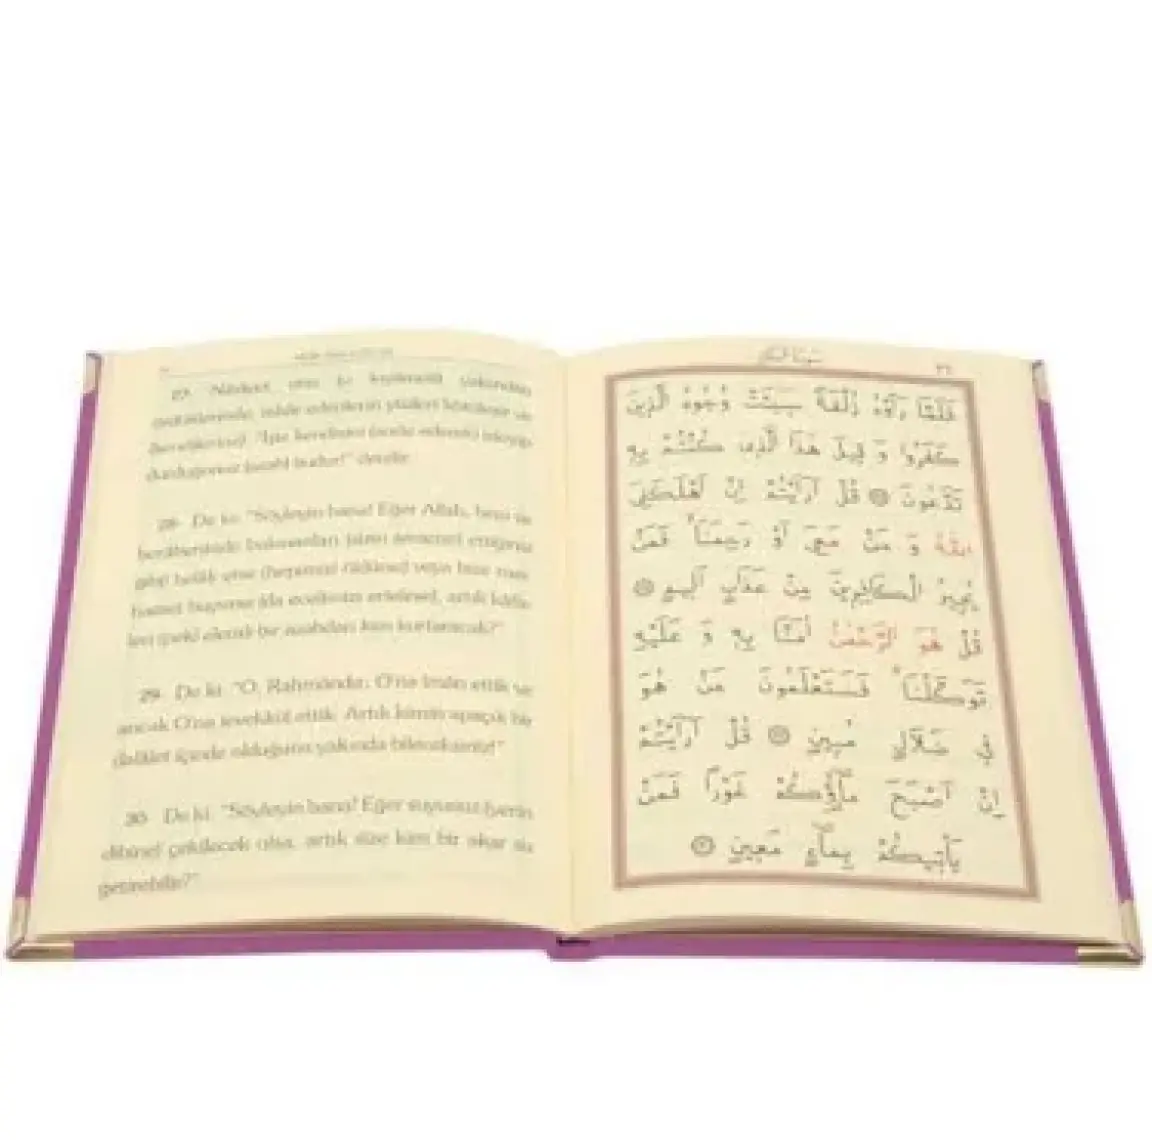 27. Nihayet onu
durduğunuz (azab) budur!" denilir.
28. De ki: "Söyleyin bana! Eğer Allah, beni ve
berâberimde bulunanları (sizin temenni ettiğiniz
gibi) helâk etse (hepimizi öldürse) veya bize mer-
hamet buyursa (da ecelimizi ertelese), artık kâfir-
leri (pek) elemli bir azabdan kim kurtaracak?"
29. De ki: "O, Rahmândır; O'na îmân ettik ve
ancak O'na tevekkül ettik. Artık kimin apaçık bir
dalâlet içinde olduğunu yakında bileceksiniz!"
30. De ki: "Söyleyin bana! Eğer suyunuz (yerin
dibine) çekilecek olsa, artık size kim bir akar su
getirebilir?"
سورة الملك
فَلَمَّا رَاَوْهُ زُلْفَةً سِيـَٔتْ وُجُوهُ الَّذِينَ
كَفَرُوا وَ قِيلَ هٰذَا الَّذِى كُنْتُمْ بِهِ
تَدَّعُونَ ۝ قُلْ اَرَاَيْتُمْ اِنْ اَهْلَكَنِىَ
اللّٰهُ وَ مَنْ مَعِىَ اَوْ رَحِمَنَا ۙ فَمَنْ
يُجِيرُ الْكَافِرِينَ مِنْ عَذَابٍ اَلِيمٍ ۝
قُلْ هُوَ الرَّحْمٰنُ اٰمَنَّا بِهِ وَ عَلَيْهِ
تَوَكَّلْنَا ۚ فَسَتَعْلَمُونَ مَنْ هُوَ
فِى ضَلَالٍ مُبِينٍ ۝ قُلْ اَرَاَيْتُمْ
اِنْ اَصْبَحَ مَٓاؤُكُمْ غَوْرًا فَمَنْ
يَاْتِيكُمْ بِمَٓاءٍ مَعِينٍ ۝